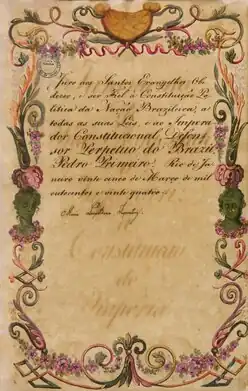 Juro aos Santos Evangelhos Obe
decer, e ser Fiel á Constituição Po
litica da Nação Brazileira, a
todas as suas Leis, e ao Impera
dor Constitucional Defen
sor Perpetuo do Brazil
Pedro Primeiro. Rio de Ja
neiro vinte cinco de Março de mil
oitocentos e vinte quatro.
Constituição
do
Imperio